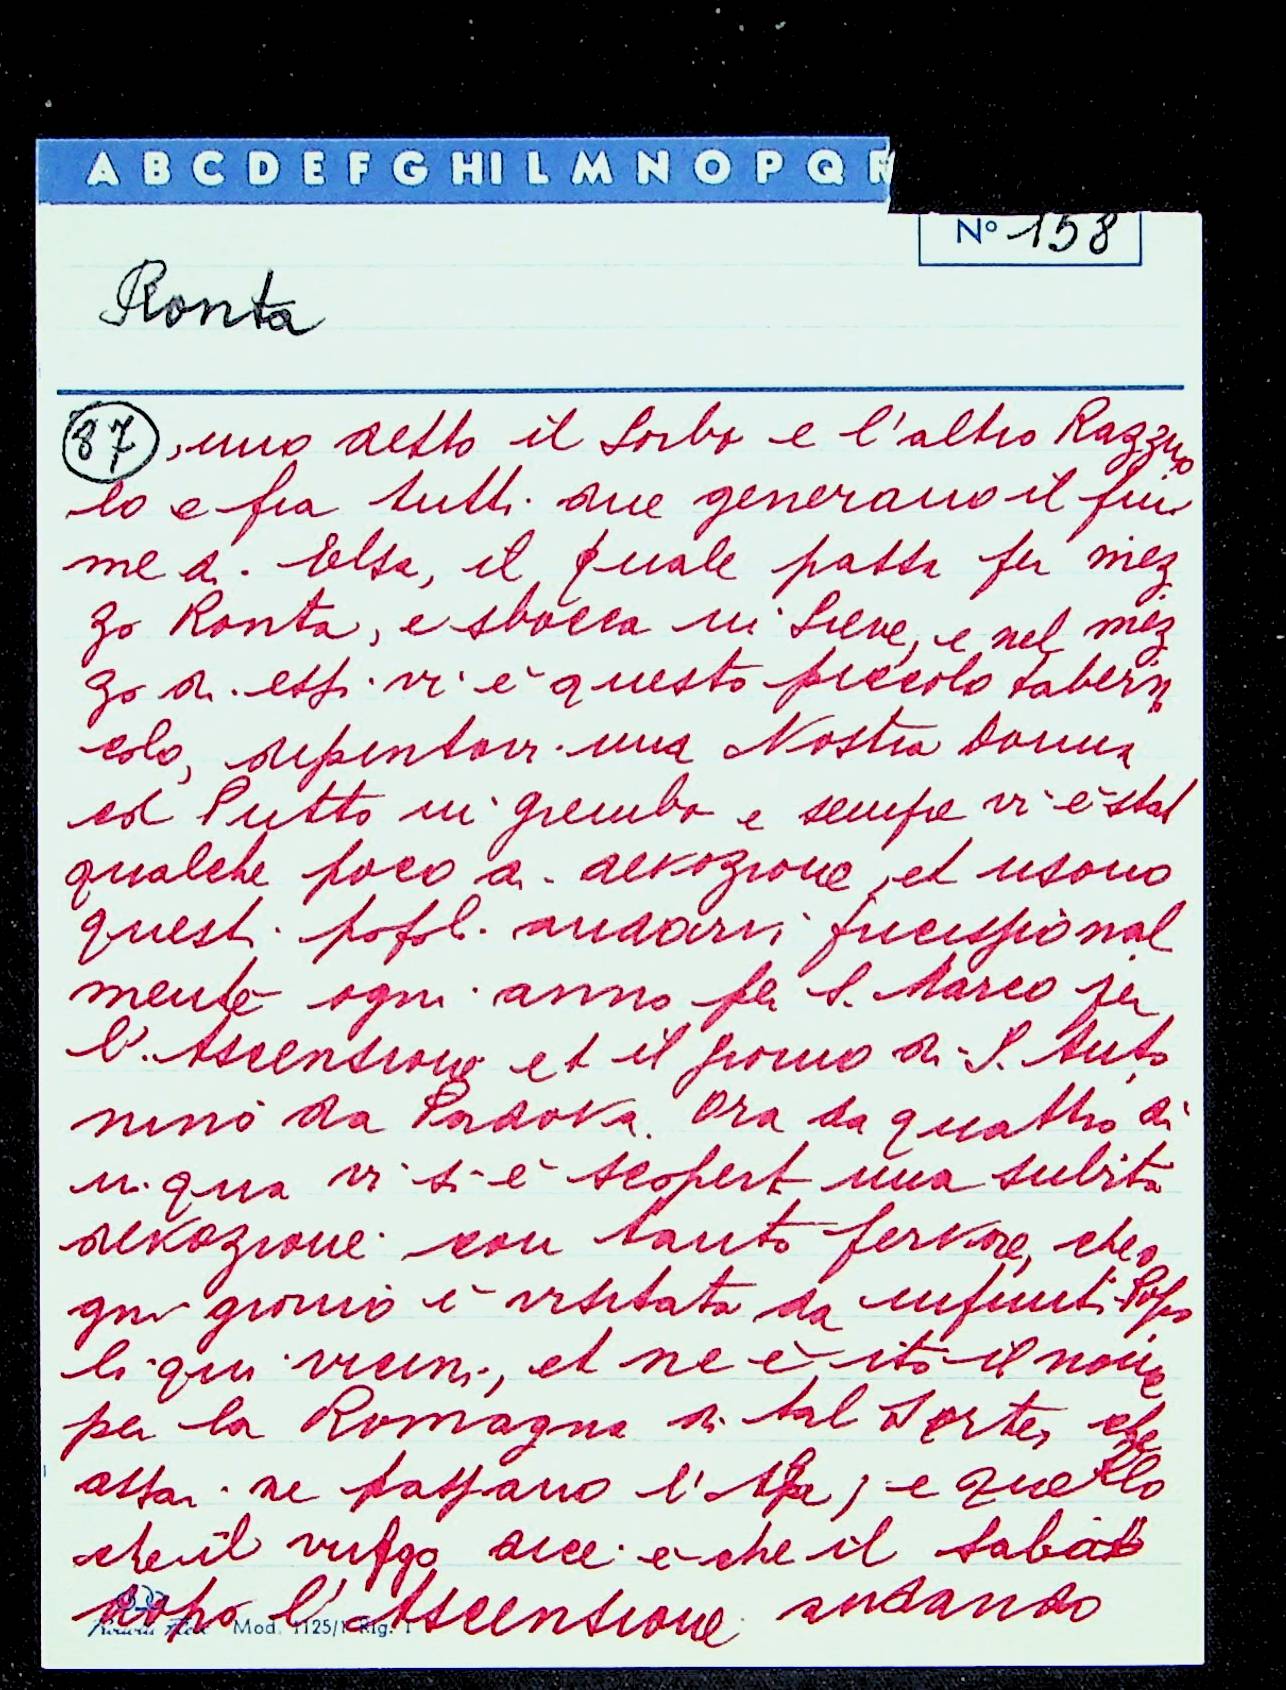 A B C D E F G H I L M N O P Q R
N° 158
Ronta
87 , uno detto il Sorbo e l'altro Razzuo
lo e fra tutti due generano il fiu
me di Elsa, il quale passa per mez
zo Ronta, e sbocca in Sieve, e nel mez
zo di essi vi è questo piccolo tabern
colo, dipintovi una Nostra Donna
col Putto in grembo e sempre vi è stat
qualche poco di devozione, et usono
questi popoli andarvi processional
mente ogni anno per S. Marco per
l'Ascensione et il giorno di S. Anto
nino da Padova. Ora da quattro dì
in qua vi si è scopert una subita
devozione con tanto fervore, che o
gni giorno è visitata da infiniti Popo
li qui vicini, et ne è ito il nome
per la Romagna di tal sorte, che
assai ne passano l'Alpa; e quello
che il vulgo dice è che il sabato
dopo l'Ascensione andando
Mod. 1125/1 Rig. 1